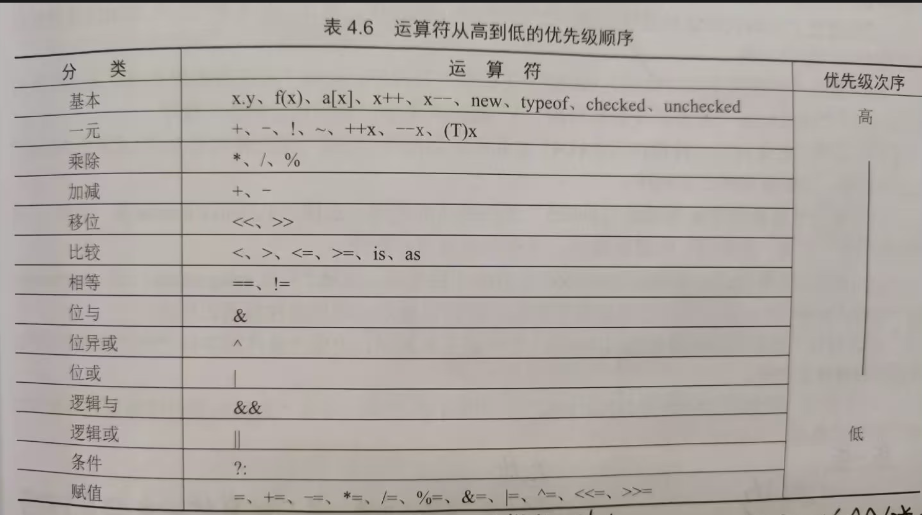 表 4.6 运算符从高到低的优先级顺序
分 类 运 算 符 优先级次序
基本 x.y、f(x)、a[x]、x++、x--、new、typeof、checked、unchecked 高
一元 +、-、!、~、++x、--x、(T)x
乘除 *、/、%
加减 +、-
移位 <<、>>
比较 <、>、<=、>=、is、as
相等 ==、!=
位与 &
位异或 ^
位或 |
逻辑与 &&
逻辑或 || 低
条件 ?:
赋值 =、+=、-=、*=、/=、%=、&=、|=、^=、<<=、>>=